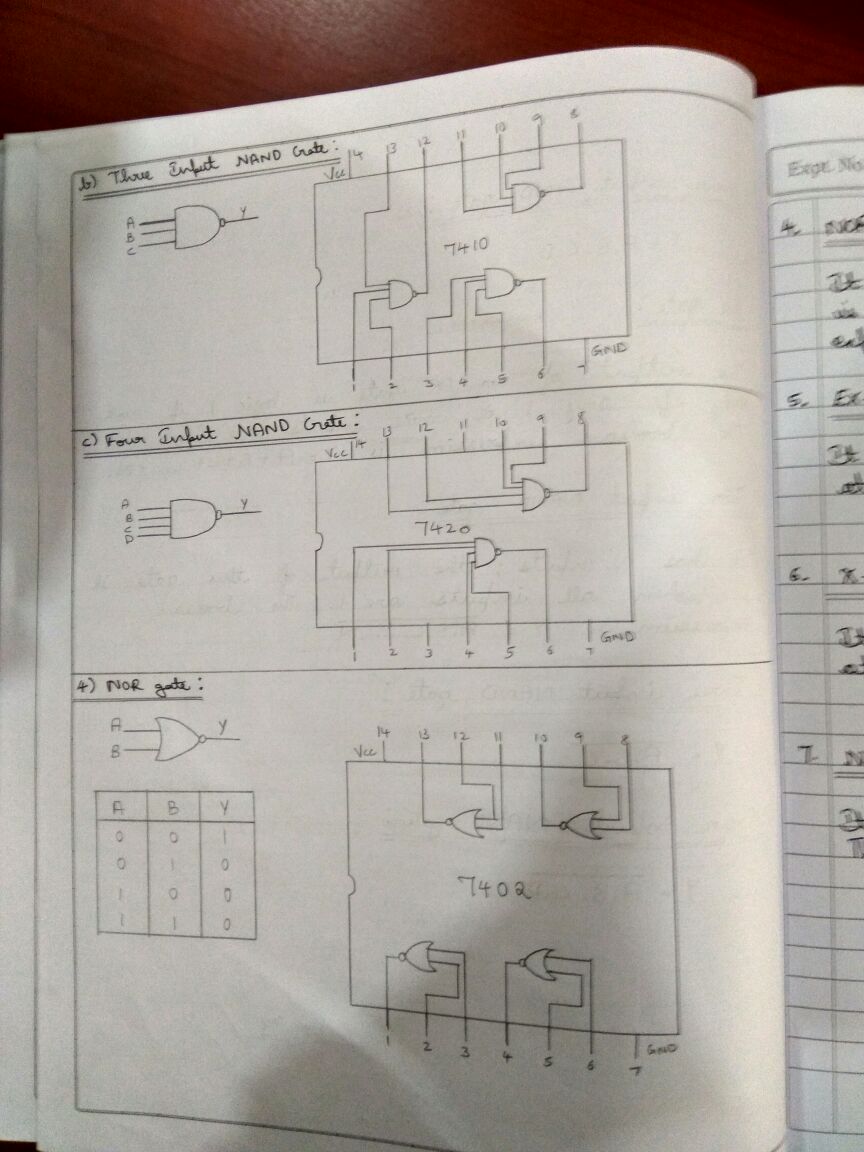 b) Three Input NAND Gate:
A
B
C
Y
Vcc 14 13 12 11 10 9 8
7410
1 2 3 4 5 6 7 GND
c) Four Input NAND Gate:
A
B
C
D
Y
Vcc 14 13 12 11 10 9 8
7420
1 2 3 4 5 6 7 GND
4) NOR gate:
A
B
Y
Vcc 14 13 12 11 10 9 8
A B Y
0 0 1
0 1 0
1 0 0
1 1 0
7402
1 2 3 4 5 6 7 GND
Expt. No
4.
It
5. Ex
It
6. X-
It
7. N
It